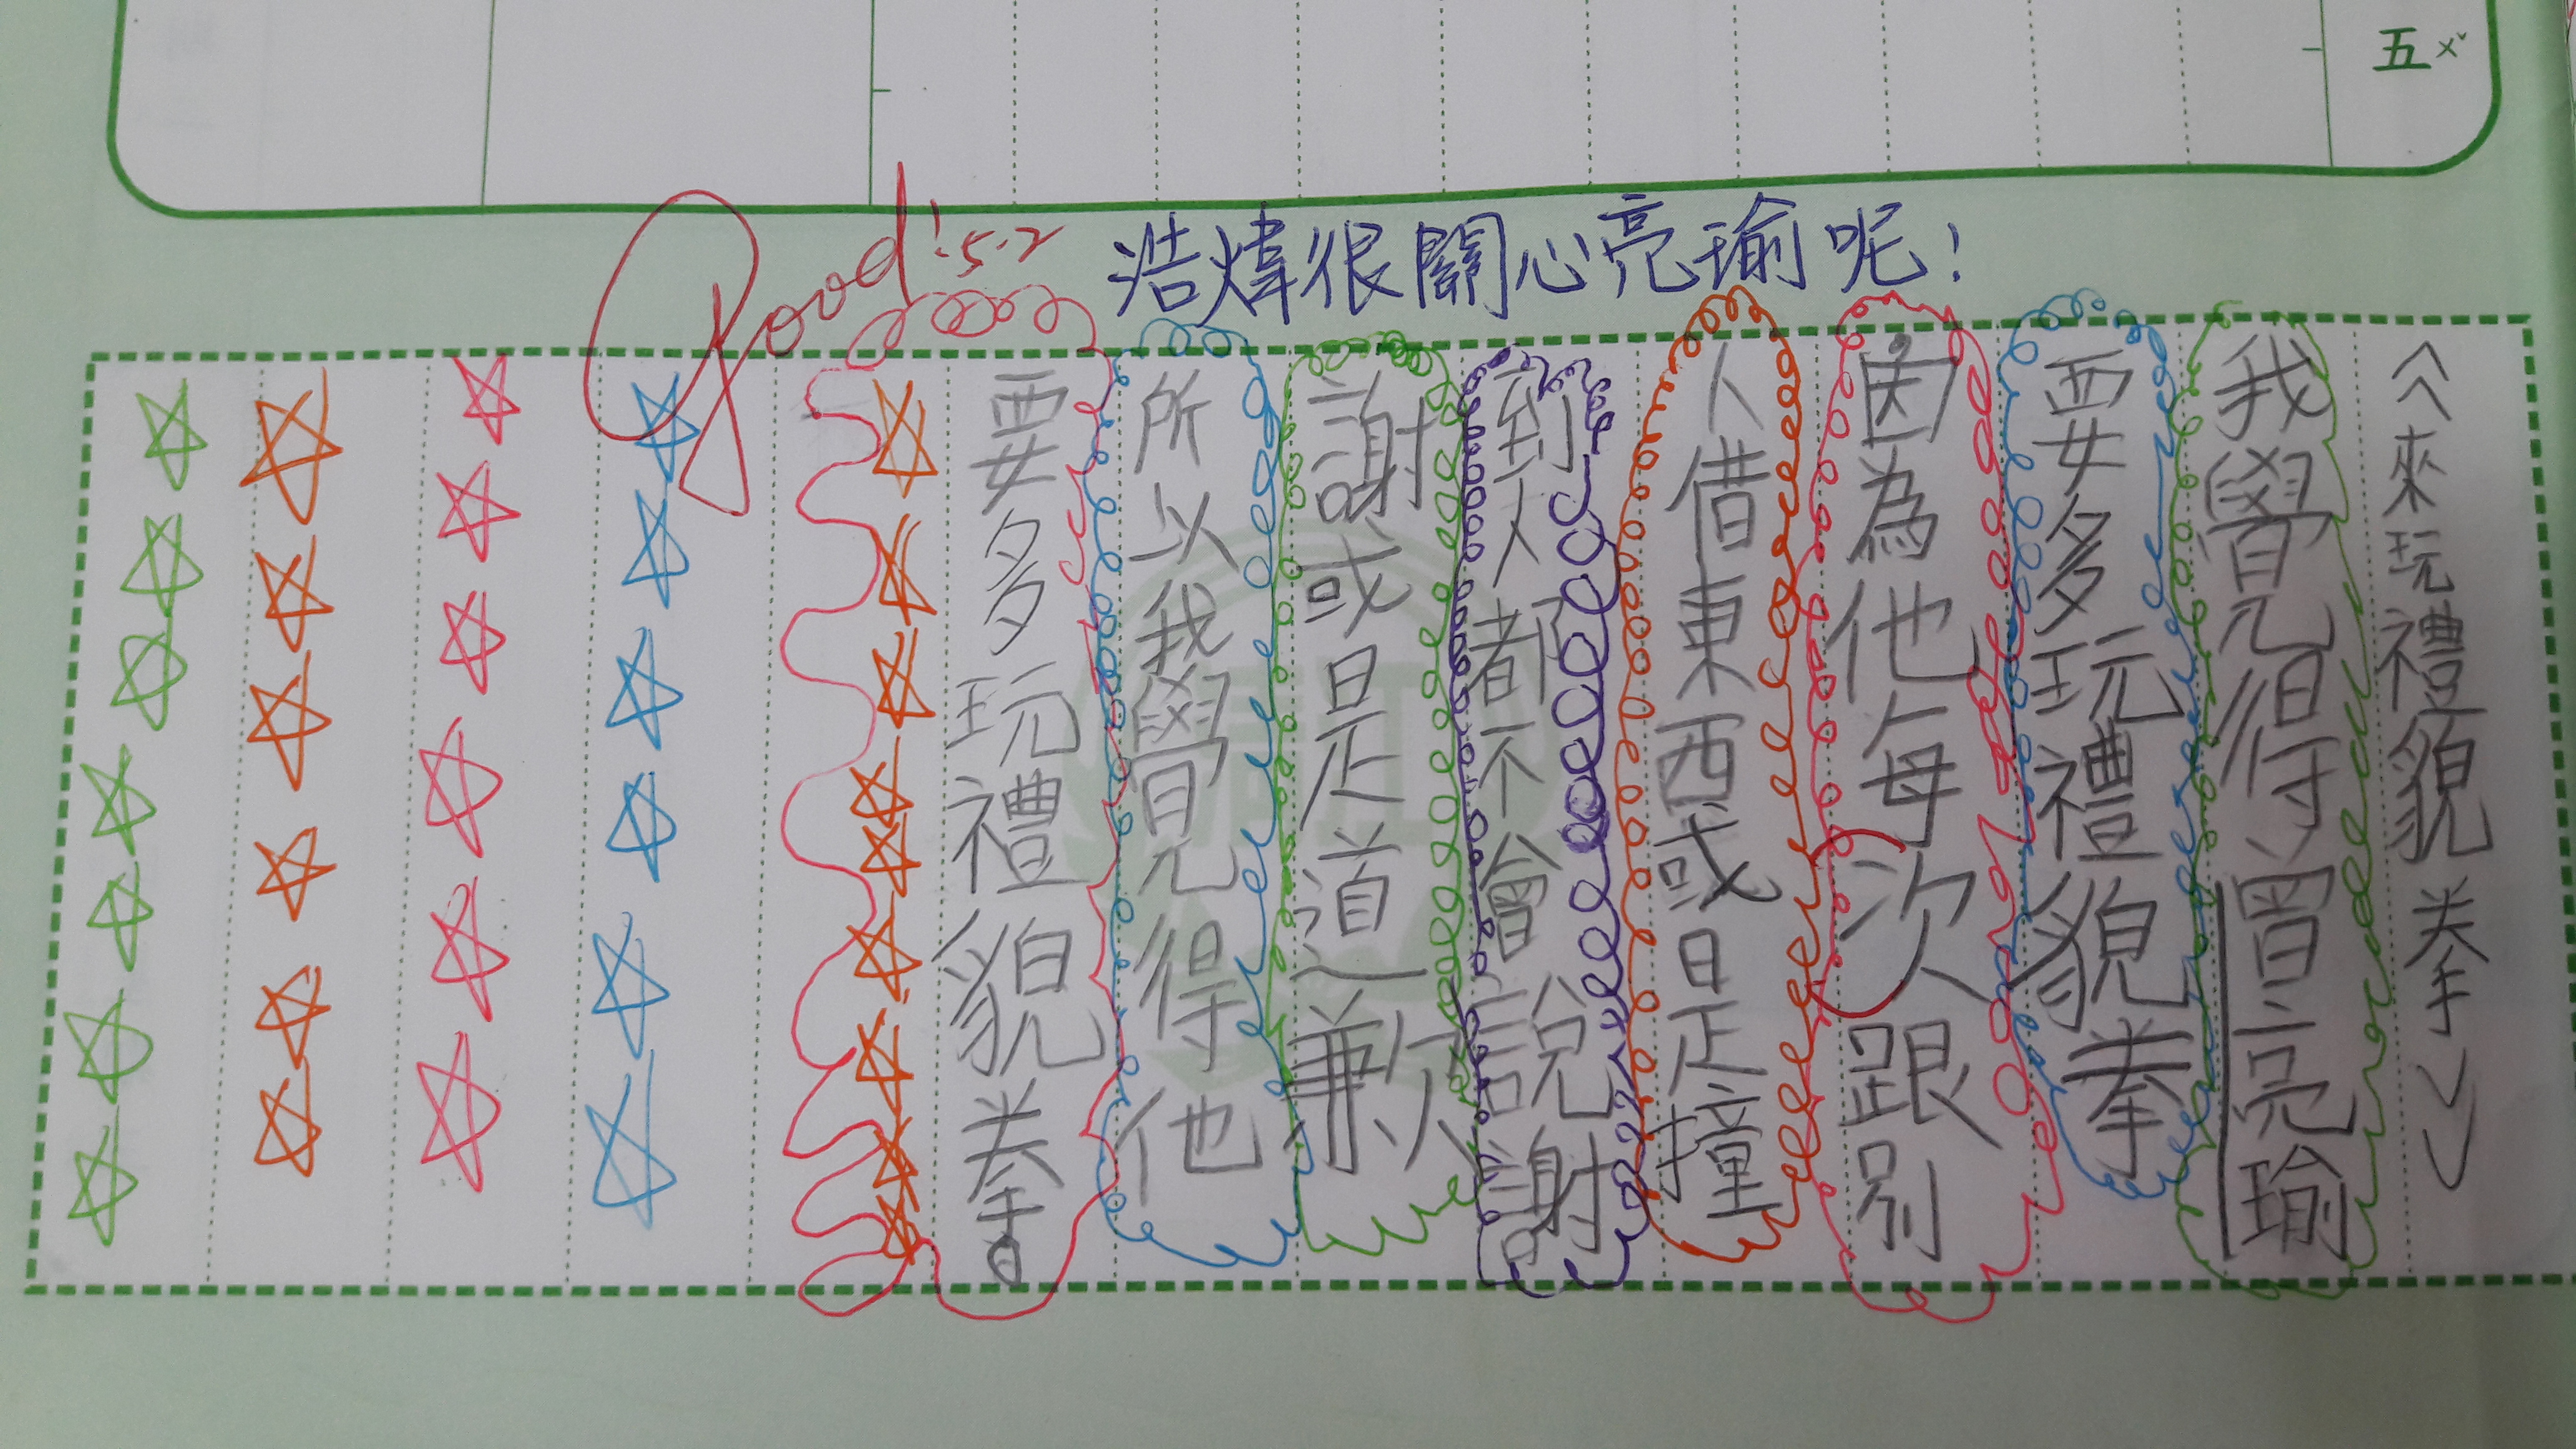 五ㄨˇ
浩煒很關心亮瑜呢！
Good! 5.2
《來玩禮貌拳》
我覺得曾亮瑜
要多玩禮貌拳
因為他每次跟別
人借東西或是撞
到人都不會說謝
謝或是道歉
所以我覺得他
要多玩禮貌拳。